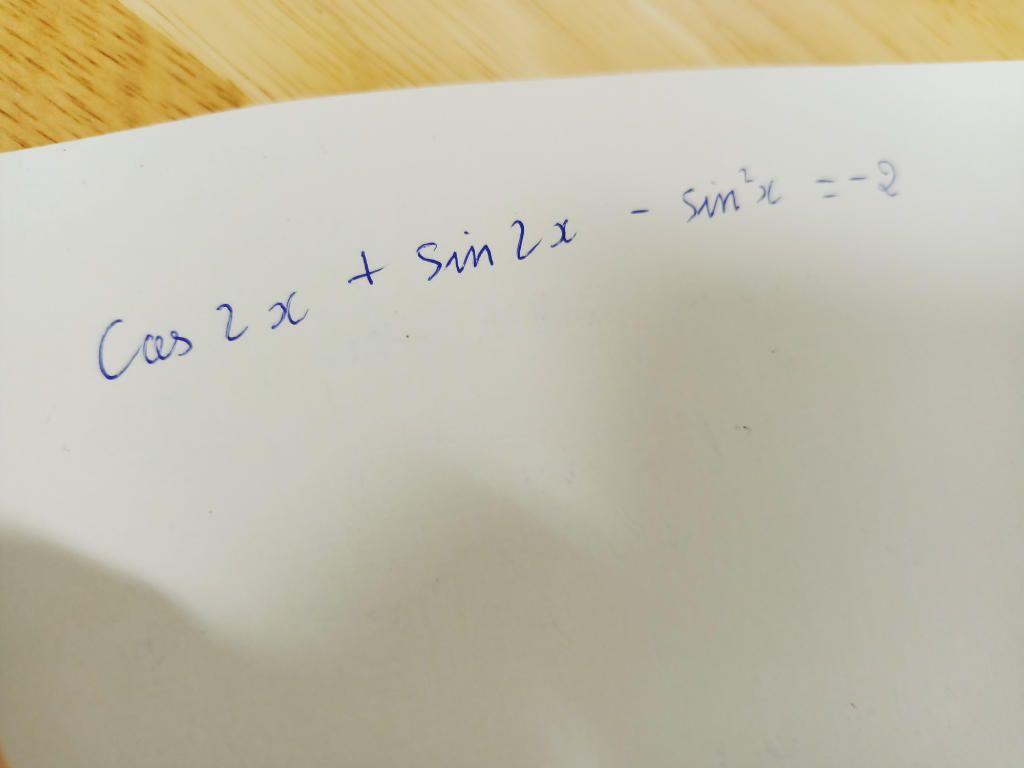 Cos 2x + sin 2x - sin²x = -2